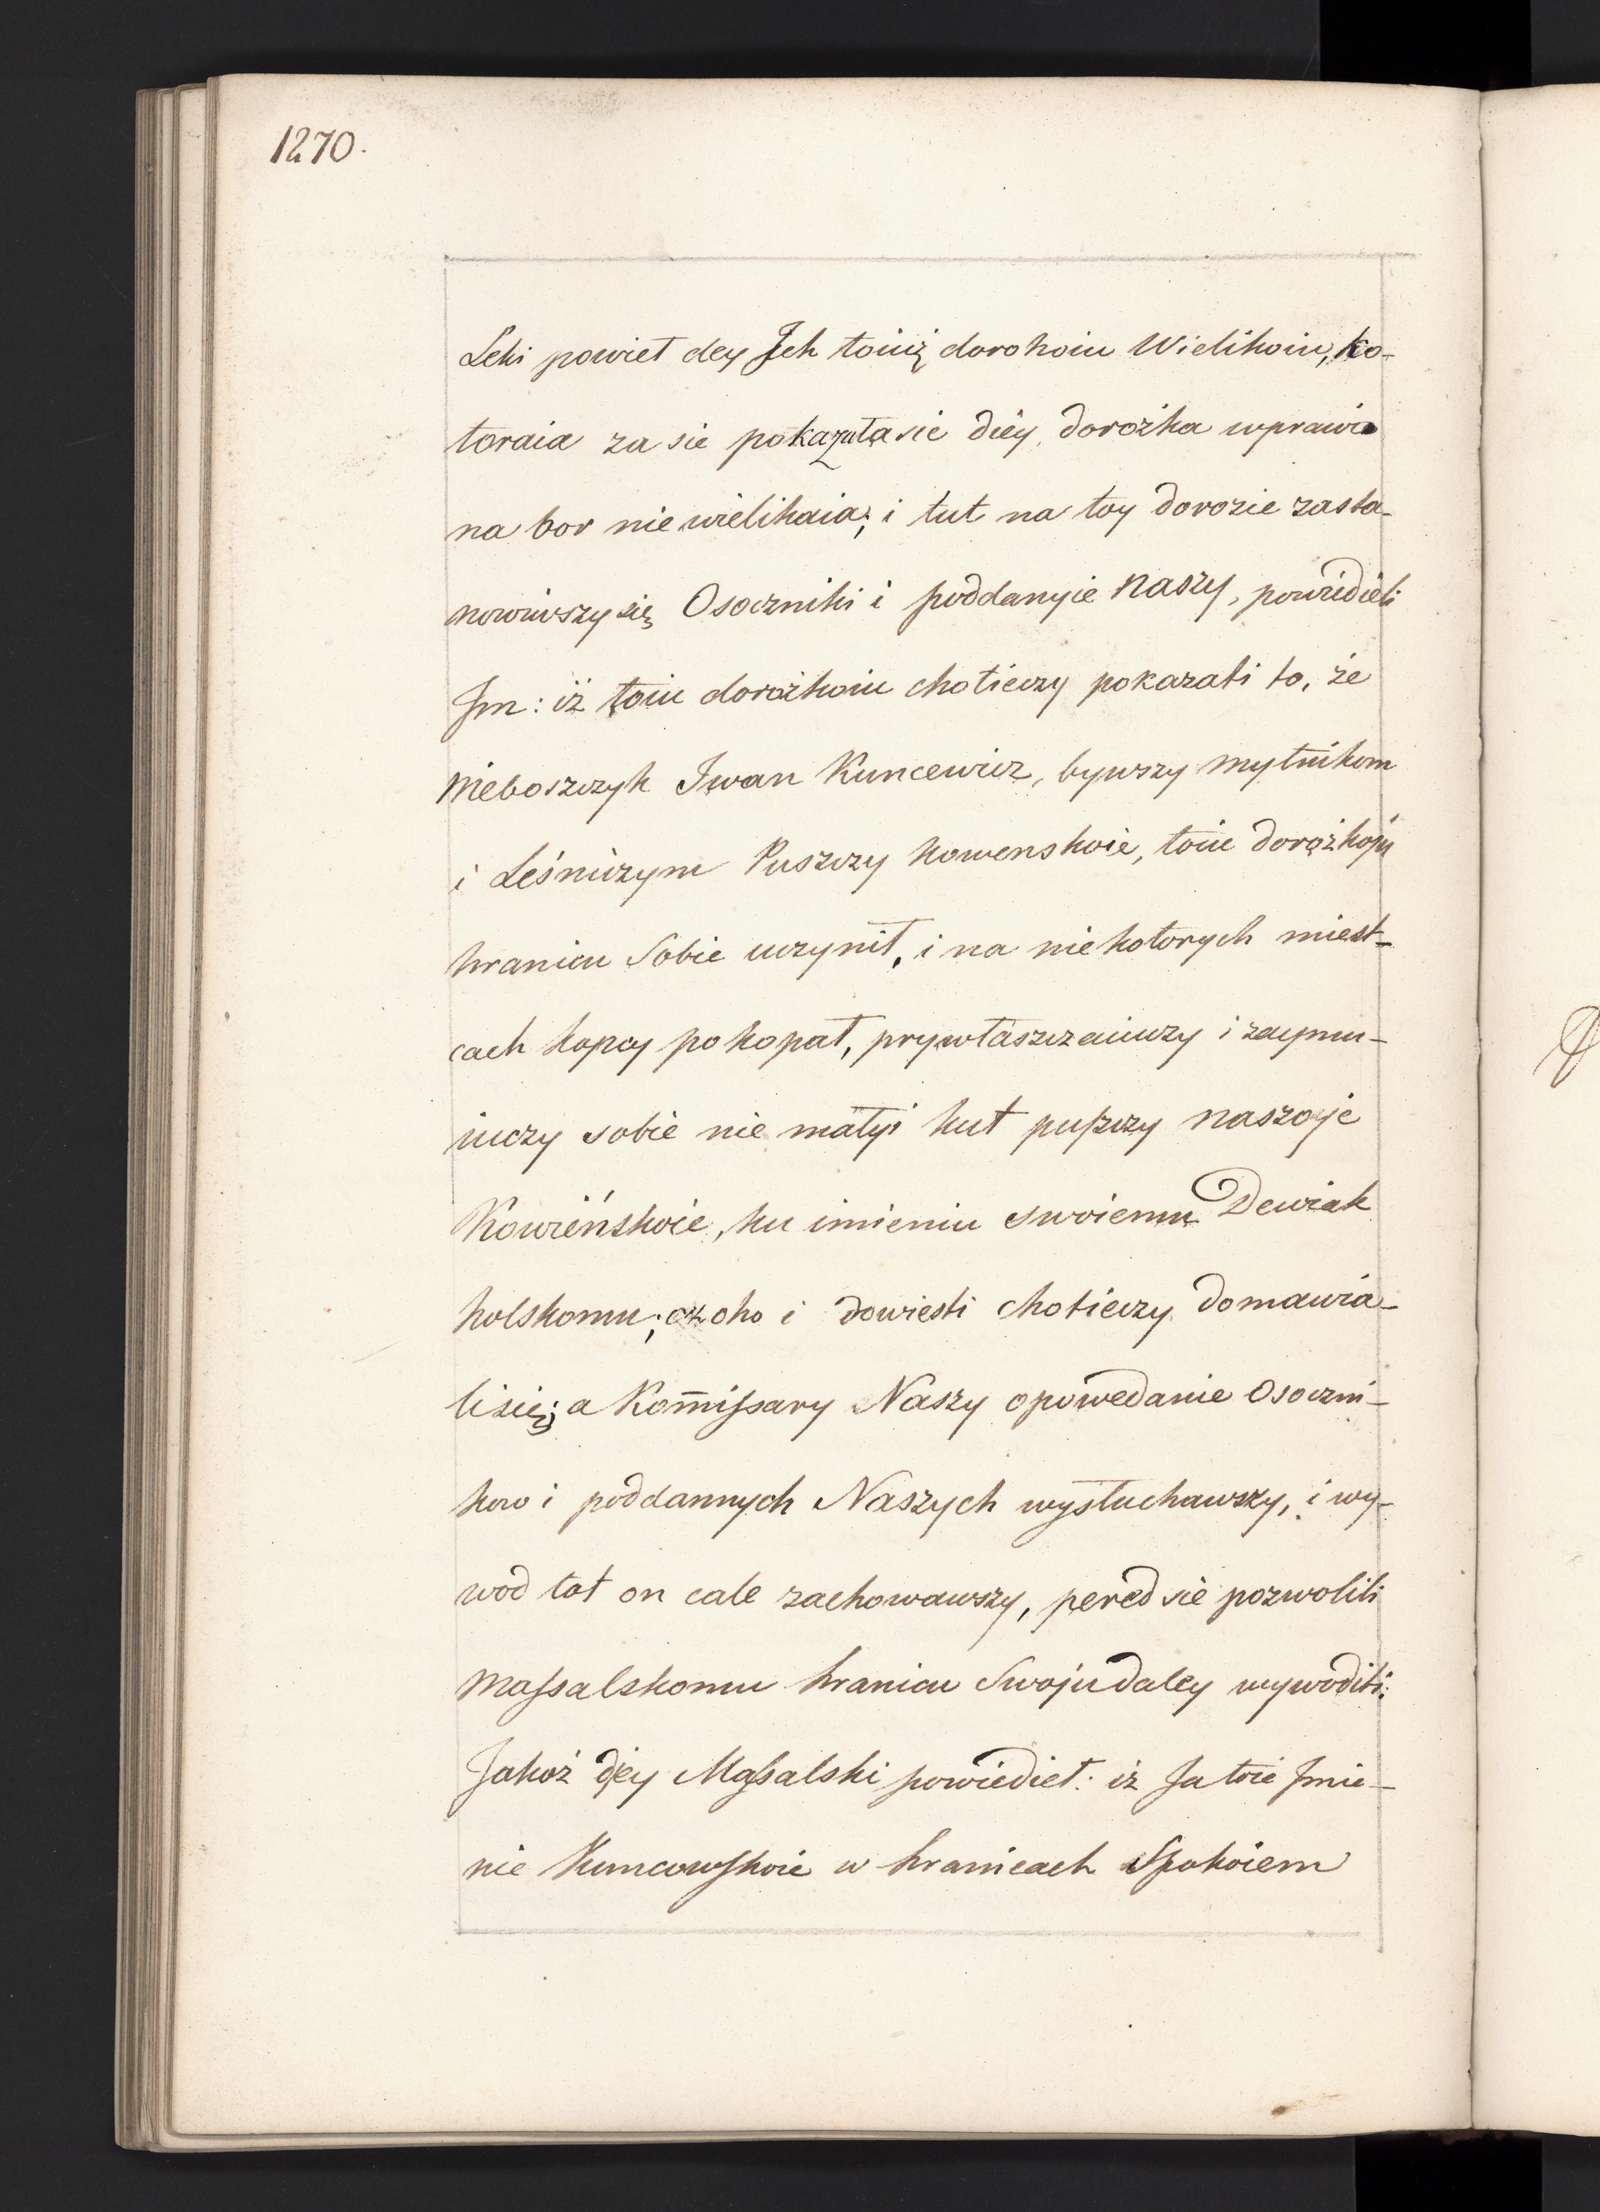 1270.
Lehi powiet dey Jch toiuż dorohoiu Wielikoiu, ko-
toraia za sie pokazałasie diéy dorożka wprawie
na bor nie wielikaia; i tut na toy dorozie zasta-
nowiwszysię Osoczniki i poddanyie naszy, powiedieli
Jm: iż toiu dorożkoiu chotieczy pokazati to, że
nieboszczyk Jwan Kuncewicz, bywszy mytnikom
i Leśniczym Puszczy Kowenskoie, toiu dorożkoju
hranicu Sobie uczynił, i na niekotorych miest-
cach kopcy pokopał, prywłaszczaiuczy i zaymu-
iuczy sobie nie małyi kut puszczy naszoje
Kowieńskoie, ku imieniu swoiemu Dewiak
holskomu; czoho i dowiesti chotieczy domawia-
lisię; a Kom̄issary Naszy opowedanie Osoczni-
kow i poddannych Naszych wysłuchawszy, i wy-
wod tot on cale zachowawszy, pered sie pozwolili
Massalskomu hranicu Swoju daley wywoditi:
Jakoż diey Massalski powiediet: iż Ja toie Jmie-
nie Kuncowskoie w hranicach Spokoiem